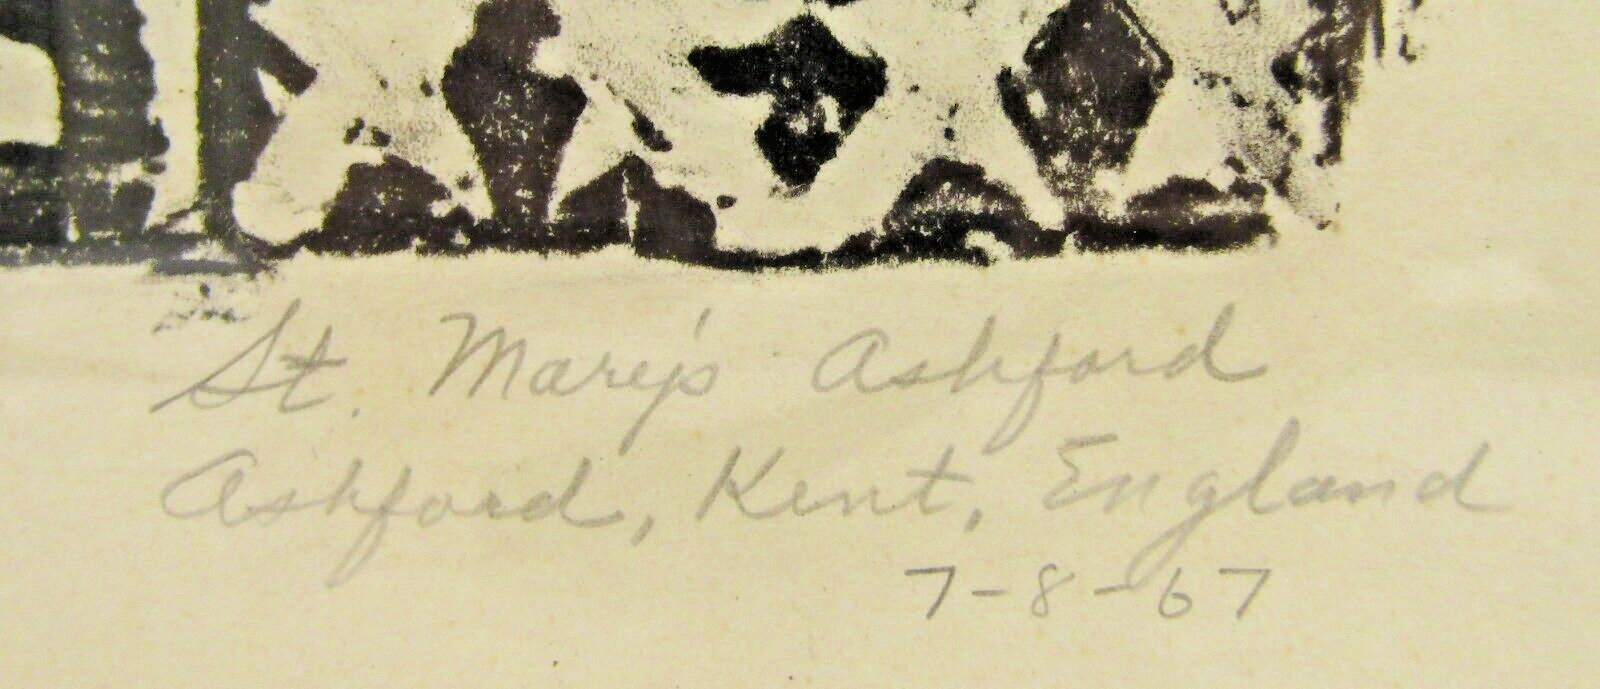 St. Mary's Ashford
Ashford, Kent, England
7-8-67